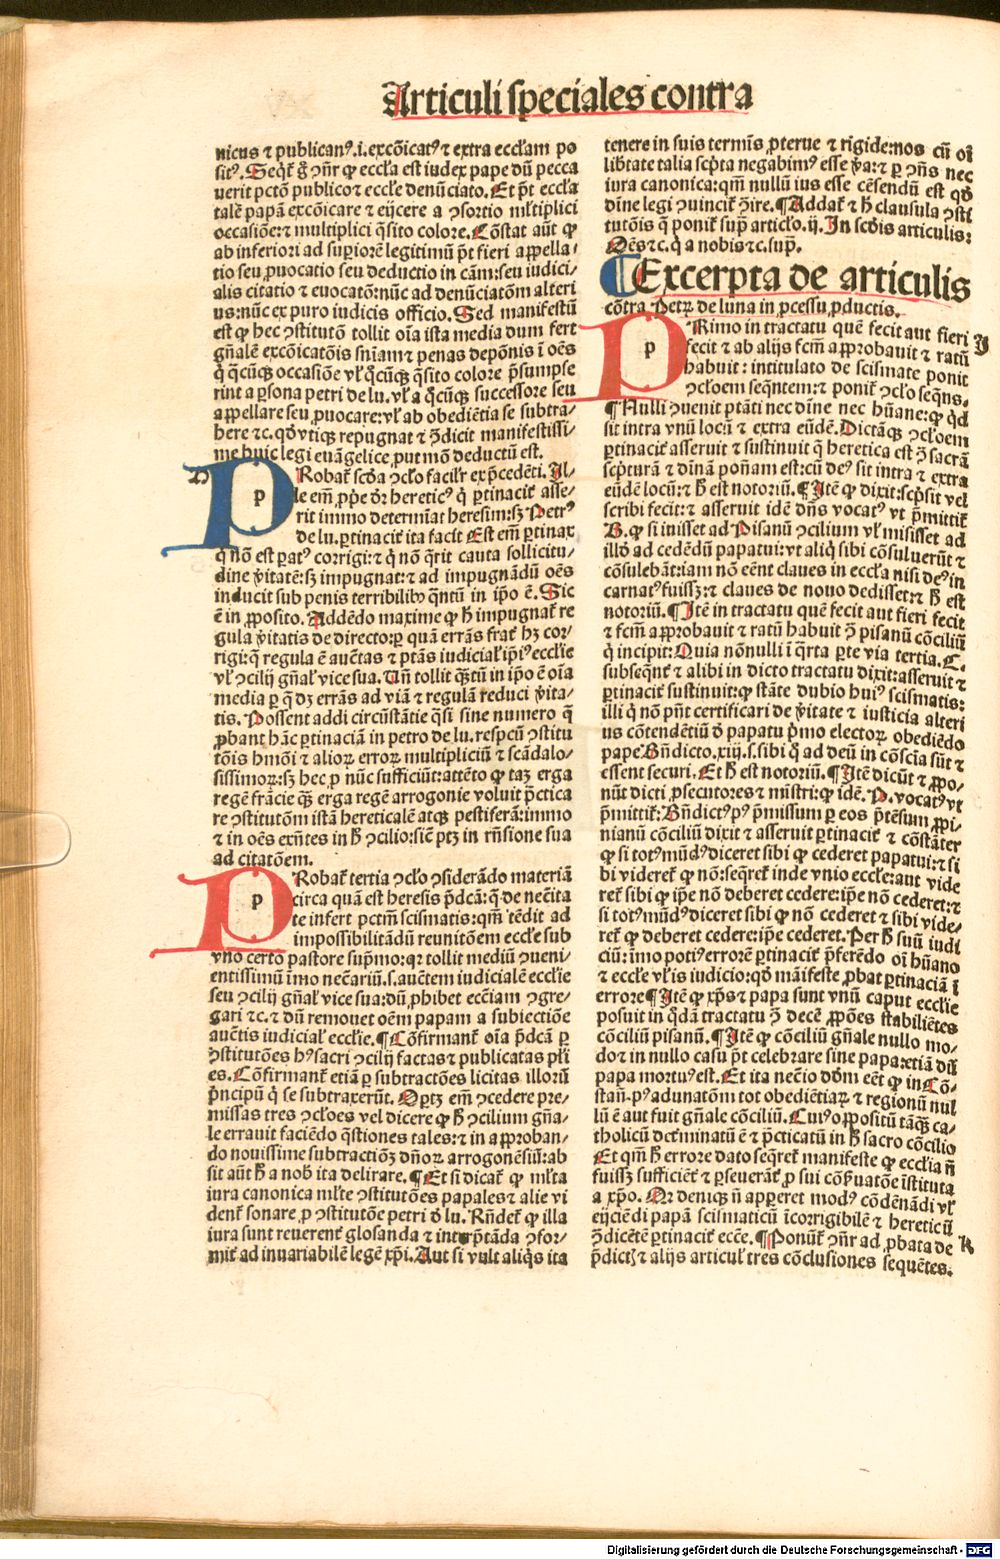 Articuli speciales contra
nicus ⁊ publicanꝰ.i.excōicatꝰ ⁊ extra eccl'am po
sitꝰ. Seqt̄ ḡ ꝯn̄r ꝙ eccl'a est iudex pape dū pecca
uerit pctō publico ⁊ eccl'e denūciato. Et pt̄ eccl'a
talē papā excōicare ⁊ eijcere a ꝯsortio ml'tiplici
occasiōe: ⁊ multiplici q̄sito colore. Cōstat aūt ꝙ
ab inferiori ad supiorē legitimū pt̄ fieri appella-
tio seu ꝓuocatio seu deductio in cām: seu iudici-
alis citatio ⁊ euocatō: nūc ad denūciatōm alteri
us: nūc ex puro iudicis officio. Sed manifestū
est ꝙ hec ꝯstitutō tollit oīa ista media dum fert
gn̄alē excōicatōis sn̄iam ⁊ penas depōnis ī oēs
q̄ q̄cūqꝫ occasiōe vl' q̄cūqꝫ q̄sito colore p̄sumpse
rint a ꝑsona petri de lu. vl' a q̄cūqꝫ successore seu
appellare seu ꝓuocare: vl' ab obediētia se subtra-
here ⁊c. qd̄ vtiqꝫ repugnat ⁊ ꝯ̄dicit manifestissi-
me huic legi euāgelice, put mō deductū est.
p
Robat̄ scd̄a ꝯclo facil'r ex p̄cedēti. Il-
le em̄ ꝓp̄e d̄r hereticꝰ q̄ ꝑtinacit̄ asse-
rit immo determīat heresim: sꝫ Petrꝰ
de lu. ꝑtinacit̄ ita facit Est em̄ ꝑtinax
q̄ nō est patꝰ corrigi: ⁊ q̄ nō q̄rit cauta sollicitu-
dine v̄itatē: sꝫ impugnat: ⁊ ad impugnādū oēs
inducit sub penis terribilibꝰ q̄ntū in ip̄o ē. Sic
ē in ꝓposito. Addēdo maxime ꝙ h̄ impugnat̄ re
gula v̄itatis de director, ꝑ quā errās frat̄ hꝫ cor-
rigi: q̄ regula ē auc̄tas ⁊ ptās iudicial' ip̄iꝰ eccl'ie
vl' ꝯcilij gn̄al' vice sua. Vn̄ tollit q̄ꝫtū in ip̄o ē oīa
media ꝑ q̄ dꝫ errās ad viā ⁊ regulā reduci v̄ita-
tis. Possent addi circūstātie q̄si sine numero q̄
ꝓbant hāc ꝑtinaciā in petro de lu. respcū ꝯstitu
tōis hmōi ⁊ alioꝝ erroꝝ multipliciū ⁊ scādalo-
sissimoꝝ: sꝫ hec ꝓ nūc sufficiūt: attēto ꝙ taꝫ erga
regē frācie q̄ꝫ erga regē arrogonie voluit p̄ctica
re ꝯstitutōm istā hereticalē atqꝫ pestiferā: immo
⁊ in oēs exn̄tes in h̄ ꝯcilio: sic̄ ptꝫ in rn̄sione sua
ad citatōem.
p
Robat̄ tertia ꝯclo ꝯsiderādo materiā
circa quā est heresis p̄dcā: q̄ de nec̄ita
te infert pctm̄ scismatis: qm̄ tēdit ad
impossibilitādū reunitōem eccl'e sub
vno certo pastore supmo: qꝛ tollit mediū ꝯueni-
entissimū īmo nec̄ariū.s. auctem iudicialē eccl'ie
seu ꝯcilij gn̄al' vice sua: dū ꝓhibet ecc̄iam ꝯgre-
gari ⁊c. ⁊ dū remouet oēm papam a subiectiōe
auc̄tis iudicial' eccl'ie. ¶ Cōfirmant̄ oīa p̄dcā ꝑ
ꝯstitutōes hꝰ sacri ꝯcilij factas ⁊ publicatas pl'i
es. Cōfirmant̄ etiā ꝑ subtractōes licitas illorū
p̄ncipū q̄ se subtraxerūt. Optꝫ em̄ ꝯcedere pre-
missas tres ꝯcl'oes vel dicere ꝙ h̄ ꝯcilium gn̄a-
le errauit faciēdo q̄stiones tales: ⁊ in approban-
do nouissime subtractiōꝫ dn̄oꝝ arrogonēsiū: ab
sit aūt h̄ a nob̄ ita delirare. ¶ Et si dicat̄ ꝙ ml'ta
iura canonica ml'te ꝯstitutōes papales ⁊ alie vi
dent̄ sonare, ꝓ ꝯstitutōe petri d̄ lu. Rn̄det̄ ꝙ illa
iura sunt reuerent̄ glosanda ⁊ interp̄tāda ꝯfor-
mit̄ ad inuariabilē legē xp̄i. Aut si vult aliq̄s ita
tenere in suis termīs ꝓterue ⁊ rigide: nos cū oī
lib̄tate talia scp̄ta negabimꝰ esse v̄a: ⁊ ꝑ ꝯn̄s nec
iura canonica: qm̄ nullū ius esse cēsendū est qd̄
dīne legi ꝯuincit̄ ꝯ̄ire. ¶ Addat̄ ⁊ h̄ clausula ꝯsti
tutōis q̄ ponit̄ sup̄ articl'o. ij. In scd̄is articulis:
Oēs ⁊c. q̄ a nobis ⁊c. sup̄.
Excerpta de articulis
cōtra Petꝝ de luna in ꝓcessu ꝓductis.
p
Rimo in tractatu quē fecit aut fieri
fecit ⁊ ab alijs fcm̄ approbauit ⁊ ratū
habuit: intitulato de scismate ponit
ꝯcl'oem seqn̄tem: ⁊ ponit̄ ꝯcl'o seq̄ns.
¶ Nulli ꝯuenit ptāti nec dīne nec hūane: ꝙ qd̄
sit intra vnū locū ⁊ extra eūdē. Dictāqꝫ ꝯcl'oem
ꝑtinacit̄ asseruit ⁊ sustinuit q̄ heretica est ꝯ̄ sacrā
scp̄turā ⁊ dīnā pon̄am est: cū deꝰ sit intra ⁊ extra
eūdē locū: ⁊ h̄ est notoriū. ¶ Itē ꝙ dixit: scp̄sit vel
scribi fecit: ⁊ asseruit idē dn̄s vocatꝰ vt p̄mittit̄
B. ꝙ si iuisset ad Pisanū ꝯcilium vl' misisset ad
illō ad cedēdū papatui: vt aliq̄ sibi cōsuluerūt ⁊
cōsulebāt: iam nō eēnt claues in eccl'a nisi deꝰ in
carnatꝰ fuissꝫ: ⁊ claues de nouo dedisset: ⁊ h̄ est
notoriū. ¶ Itē in tractatu quē fecit aut fieri fecit
⁊ fcm̄ approbauit ⁊ ratū habuit ꝯ̄ pisanū cōciliū
q̄ incipit: Quia nōnulli ī q̄rta ꝑte via tertia. C.
subseqn̄t̄ ⁊ alibi in dicto tractatu dixit: asseruit ⁊
ꝑtinacit̄ sustinuit: ꝙ stāte dubio huiꝰ scismatis:
illi q̄ nō pn̄t certificari de v̄itate ⁊ iusticia alteri
us cōtendētiū d̄ papatu p̄mo electoꝝ obediēdo
pape Bn̄dicto. xiij. s. sibi q̄ ad deū in cōscīa sūt ⁊
essent securi. Et h̄ est notoriū. ¶ Itē dicūt ⁊ ꝓpo-
nūt dicti ꝓsecutores ⁊ mīstri: ꝙ idē. P. vocatꝰ vt
p̄mittit̄: Bn̄dictꝰ pꝰ p̄missum ꝑ eos p̄tēsum ꝓpi-
nianū cōciliū dixit ⁊ asseruit ꝑtinacit̄ ⁊ cōstāter
ꝙ si totꝰ mūdꝰ diceret sibi ꝙ cederet papatui: ⁊ si
bi videret̄ ꝙ nō: seq̄ret̄ inde vnio eccl'e: aut vide
ret̄ sibi ꝙ ip̄e nō deberet cedere: ip̄e nō cederet: ⁊
si totꝰ mūdꝰ diceret sibi ꝙ nō cederet ⁊ sibi vide-
ret̄ ꝙ deberet cedere: ip̄e cederet. Per h̄ suū iudi
ciū: imo potiꝰ errorē ꝑtinacit̄ p̄ferēdo oī hūano
⁊ eccl'e vl'is iudicio: qd̄ māifeste ꝓbat ꝑtinaciā ī
errore ¶ Itē ꝙ xp̄s ⁊ papa sunt vnū caput eccl'ie
posuit in q̄dā tractatu ꝯ̄ decē ꝓpōes stabiliētes
cōciliū pisanū. ¶ Itē ꝙ cōciliū gn̄ale nullo mo-
do ⁊ in nullo casu pt̄ celebrare sine papa: etiā dū
papa mortuꝰ est. Et ita nec̄io d̄dm eēt ꝙ in Cō-
stan̄. pꝰ adunatōm tot obediētiaꝝ ⁊ regionū nul
lū ē aut fuit gn̄ale cōciliū. Cuiꝰ oppositū tāqꝫ ca-
tholicū det̄minatū ē ⁊ p̄cticatū in h̄ sacro cōcilio
Et qm̄ h̄ errore dato seq̄ret̄ manifeste ꝙ eccl'ia n̄
fuissꝫ sufficiēt̄ ⁊ ꝑseuerāt̄ ꝓ sui cōseruatōe īstituta
a xp̄o. Qꝛ deniqꝫ n̄ apperet modꝰ cōdēnādi vl'
eijciēdi papā scismaticū īcorrigibilē ⁊ hereticū
ꝯ̄dicētē ꝑtinacit̄ ecc̄e. ¶ Ponūt̄ ꝯn̄r ad ꝓbata de
p̄dictꝭ ⁊ alijs articul' tres cōclusiones sequētes.
Digitalisierung gefördert durch die Deutsche Forschungsgemeinschaft - DFG